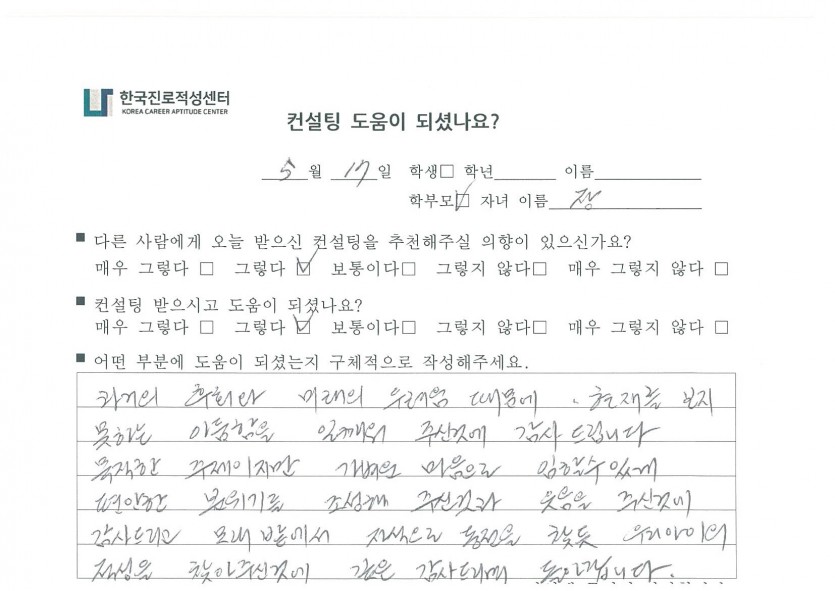 한국진로적성센터
KOREA CAREER APTITUDE CENTER
컨설팅 도움이 되셨나요?
5 월 17 일 학생□ 학년 이름
학부모☑ 자녀 이름 장
■ 다른 사람에게 오늘 받으신 컨설팅을 추천해주실 의향이 있으신가요?
매우 그렇다 □ 그렇다 ☑ 보통이다□ 그렇지 않다□ 매우 그렇지 않다 □
■ 컨설팅 받으시고 도움이 되셨나요?
매우 그렇다 □ 그렇다 ☑ 보통이다□ 그렇지 않다□ 매우 그렇지 않다 □
■ 어떤 부분에 도움이 되셨는지 구체적으로 작성해주세요.
과거의 후회와 미래의 두려움 때문에 현재를 보지
못하는 아둔함을 일깨워 주신것에 감사 드립니다
묵직한 주제이지만 가벼운 마음으로 임할수있게
편안한 분위기를 조성해 주신것과 웃음을 주신것에
감사드리고 모래밭에서 자석으로 동전을 찾듯 우리아이의
적성을 찾아주신것에 깊은 감사드리며 돌아갑니다.